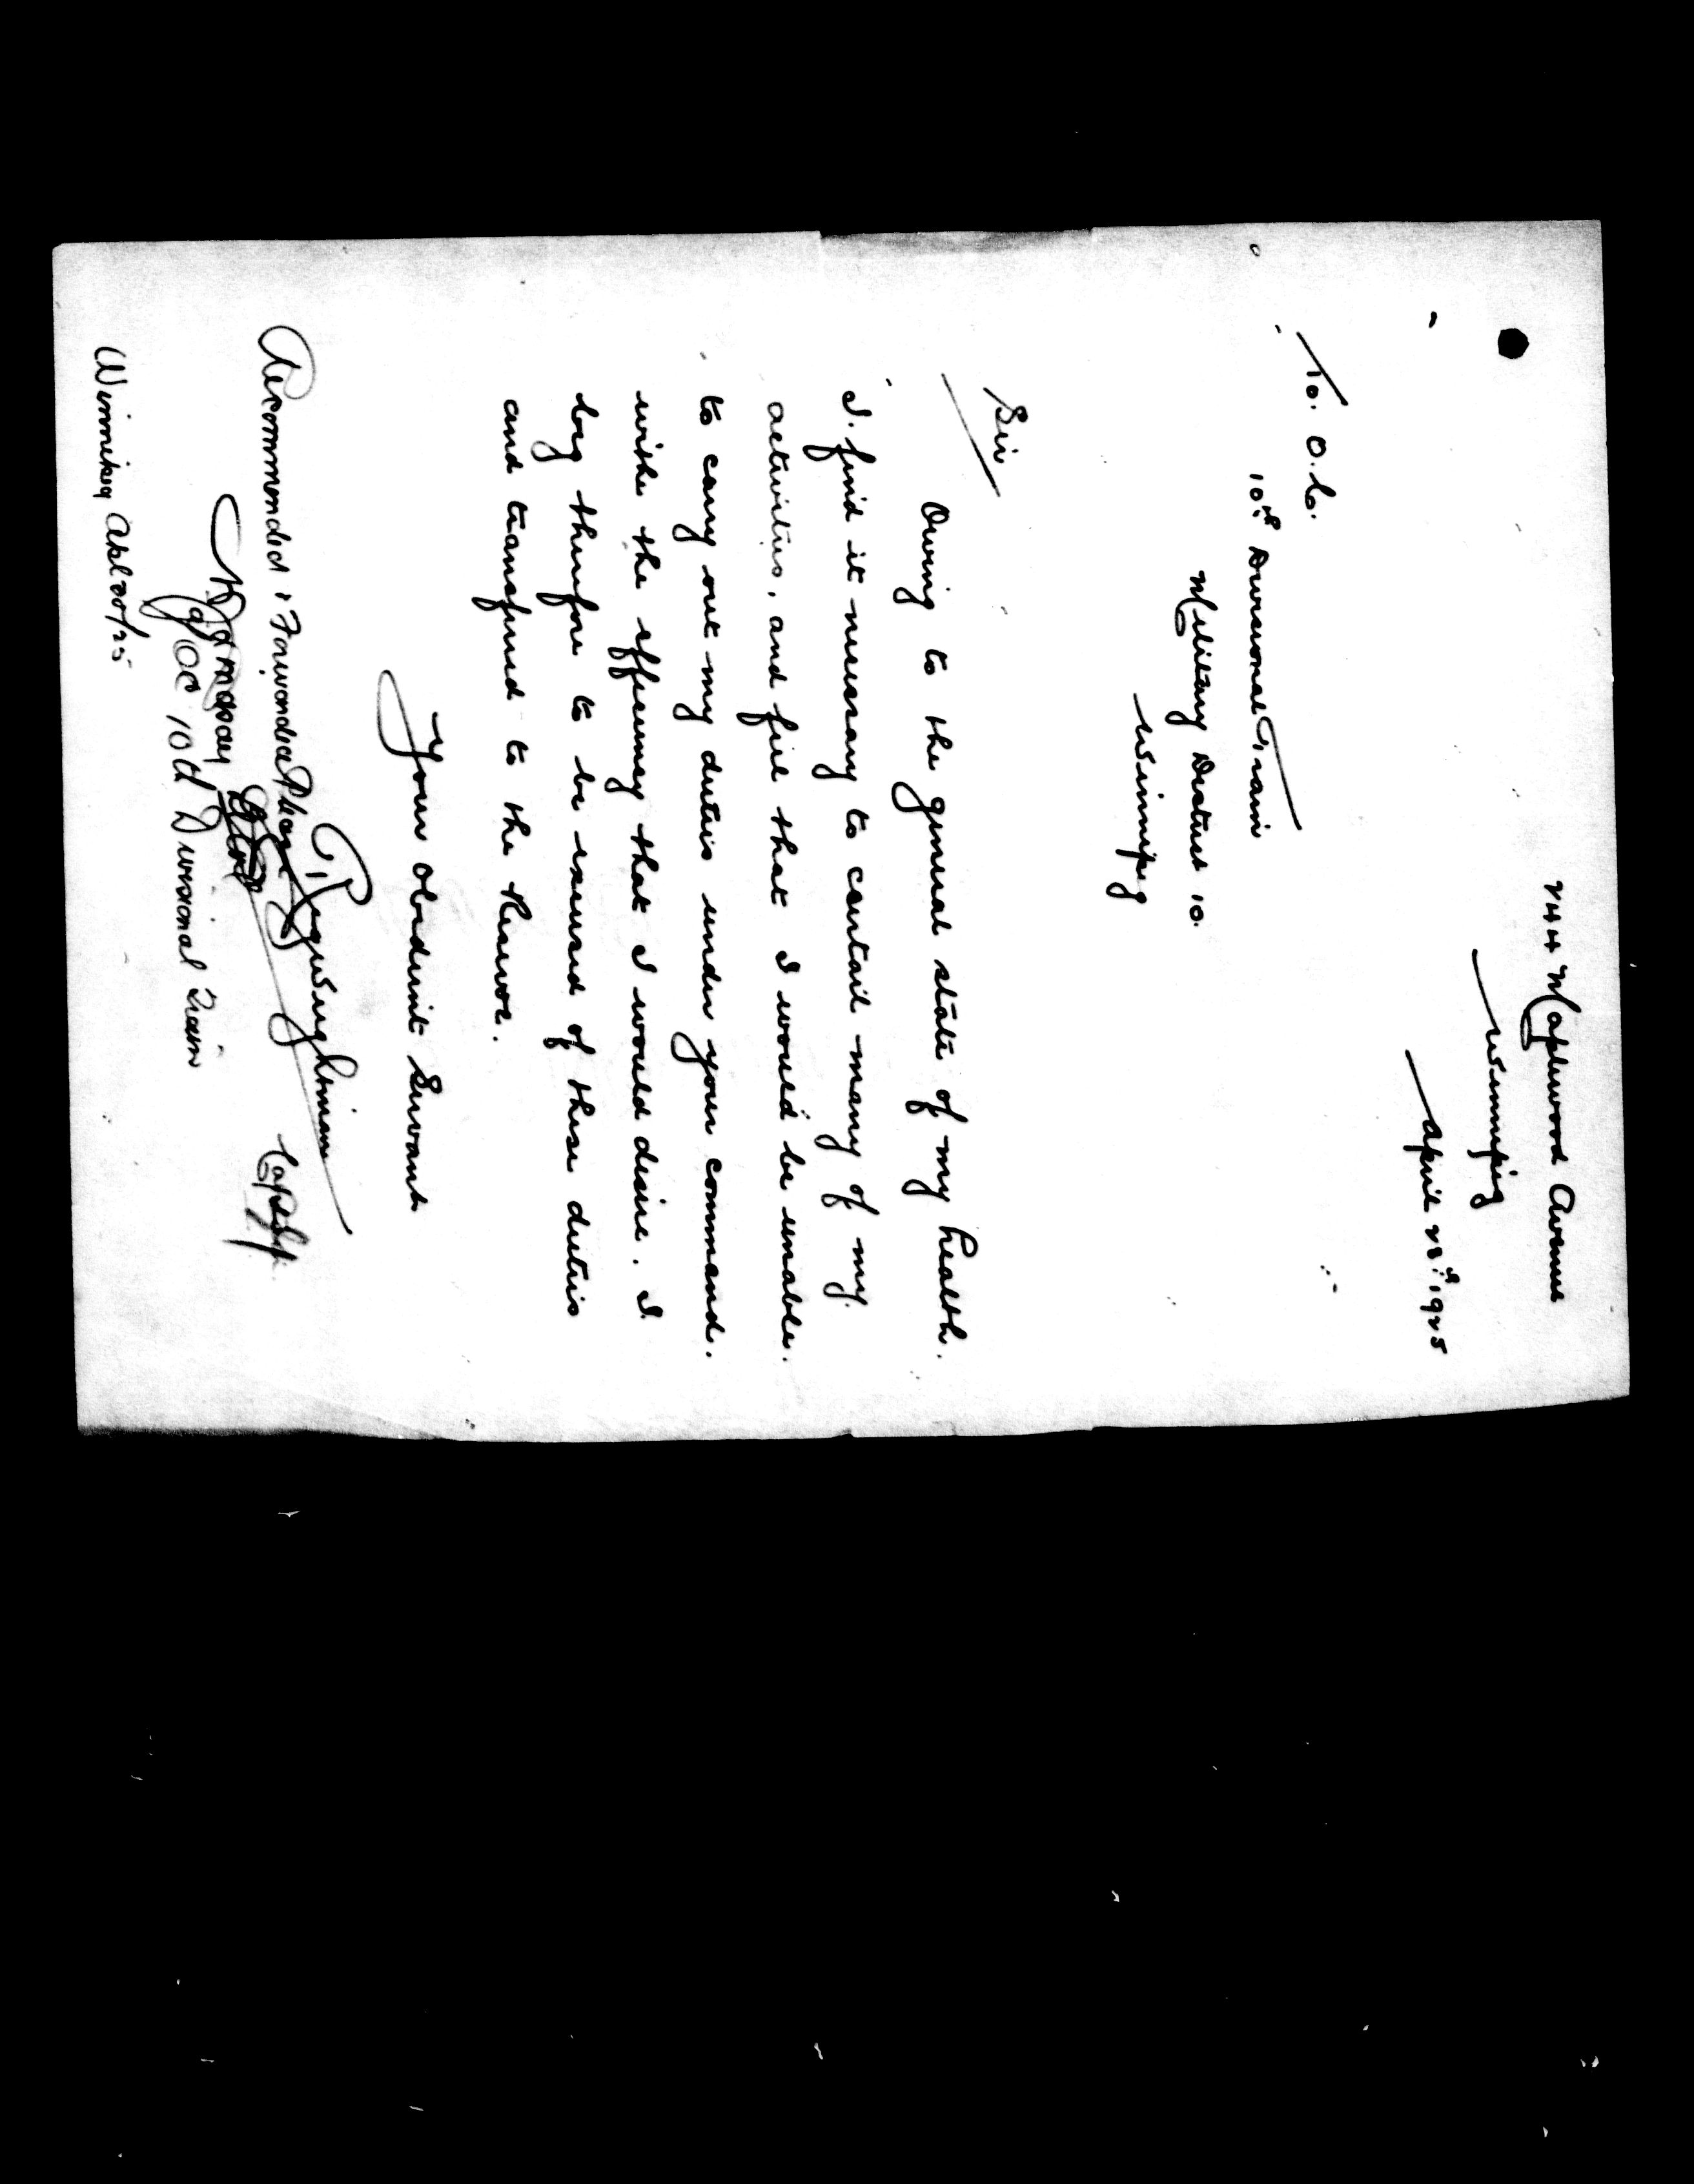 244 Maplewood Avenue
Winnipeg
April 28th 1925
To. O.C.
10th Divisional Train
Military District 10.
Winnipeg
Sir
Owing to the general state of my health.
I. find it necessary to curtail many of my.
activities, and feel that I would be unable.
to carry out my duties under your command.
with the efficiency that I would desire. I.
beg therefore to be excused of these duties
and transfered to the Reserve.
Your obedient Servant
Capt
Recommended & Forwarded Please
OC 10th Divisional Train
Winnipeg